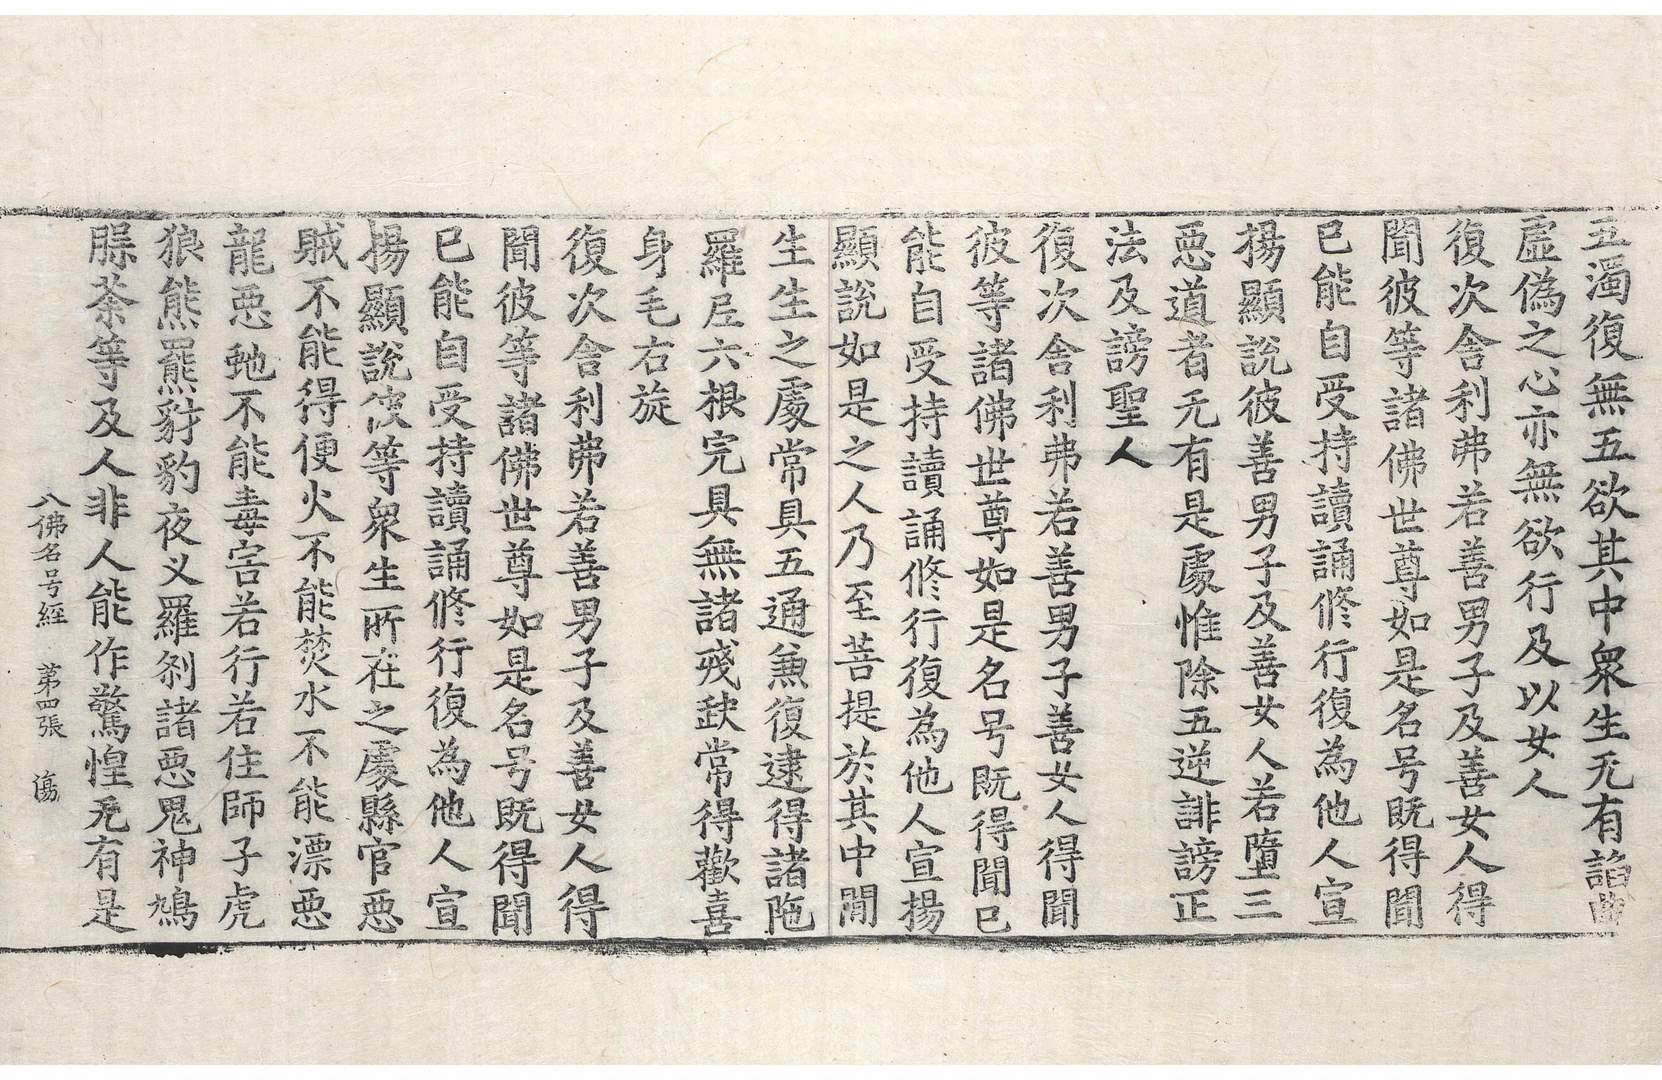 五濁復無五欲其中衆生无有諂曲
虛僞之心亦無欲行及以女人
復次舎利弗若善男子及善女人得
聞彼等諸佛世尊如是名号既得聞
已能自受持讀誦修行復為他人宣
揚顯說彼善男子及善女人若墮三
惡道者无有是處惟除五逆誹謗正
法及謗聖人
復次舎利弗若善男子善女人得聞
彼等諸佛世尊如是名号既得聞已
能自受持讀誦修行復為他人宣揚
顯說如是之人乃至菩提於其中閒
生生之處常具五通兼復逮得諸陁
羅尼六根完具無諸殘缺常得歡喜
身毛右旋
復次舎利弗若善男子及善女人得
聞彼等諸佛世尊如是名号既得聞
已能自受持讀誦修行復為他人宣
揚顯說彼等衆生所在之處縣官惡
賊不能得便火不能焚水不能漂惡
龍惡虵不能毒害若行若住師子虎
狼熊羆豺豹夜义羅剎諸惡鬼神鳩
脲荼等及人非人能作驚惶无有是
八佛名号經　第四張　傷